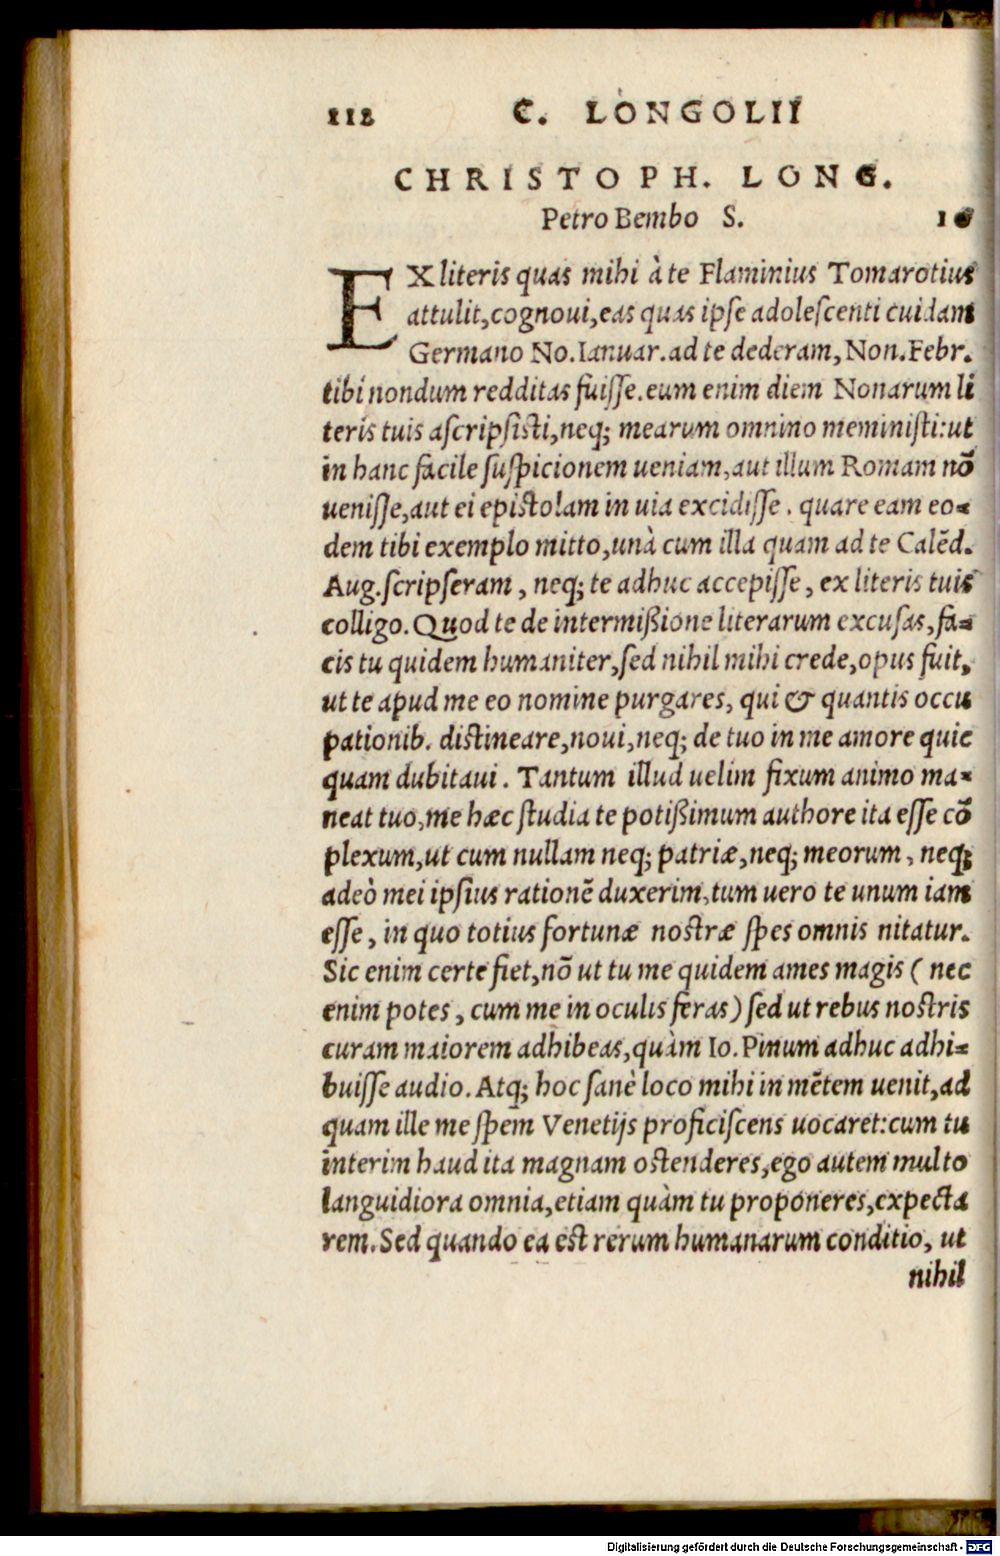 112 C. LONGOLII
CHRISTOPH. LONG.
Petro Bembo S. 10
EX literis quas mihi à te Flaminius Tomarotius
attulit, cognoui, eas quas ipse adolescenti cuidam
Germano No. Ianuar. ad te dederam, Non. Febr.
tibi nondum redditas fuisse. eum enim diem Nonarum li
teris tuis ascripsisti, neq; mearum omnino meministi: ut
in hanc facile suspicionem ueniam, aut illum Romam nō
uenisse, aut ei epistolam in uia excidisse. quare eam eo-
dem tibi exemplo mitto, unà cum illa quam ad te Calēd.
Aug. scripseram, neq; te adhuc accepisse, ex literis tuis
colligo. Quod te de intermißione literarum excusas, fa-
cis tu quidem humaniter, sed nihil mihi crede, opus fuit,
ut te apud me eo nomine purgares, qui & quantis occu
pationib. distineare, noui, neq; de tuo in me amore quic
quam dubitaui. Tantum illud uelim fixum animo ma-
neat tuo, me hæc studia te potißimum authore ita esse cō
plexum, ut cum nullam neq; patriæ, neq; meorum, neq;
adeò mei ipsius rationē duxerim, tum uero te unum iam
esse, in quo totius fortunæ nostræ spes omnis nitatur.
Sic enim certe fiet, nō ut tu me quidem ames magis ( nec
enim potes, cum me in oculis feras) sed ut rebus nostris
curam maiorem adhibeas, quàm Io. Pinum adhuc adhi-
buisse audio. Atq; hoc sanè loco mihi in mētem uenit, ad
quam ille me spem Venetijs proficiscens uocaret: cum tu
interim haud ita magnam ostenderes, ego autem multo
languidiora omnia, etiam quàm tu proponeres, expecta
rem. Sed quando ea est rerum humanarum conditio, ut
nihil
Digitalisierung gefördert durch die Deutsche Forschungsgemeinschaft - DFG